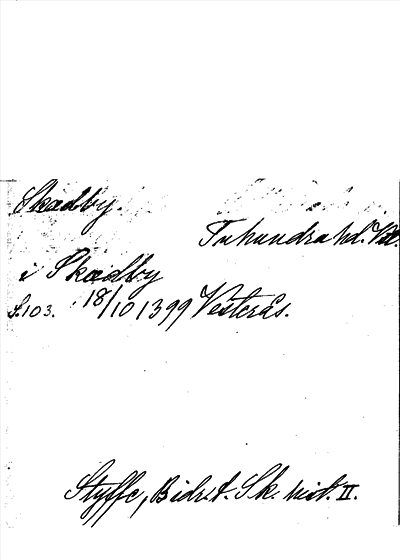 Skædby.
Tuhundra hd. Vä.
i Skædby
S. 103. 18/10 1399 Vesterås.
Styffe, Bidr. t. Sk. hist. II.